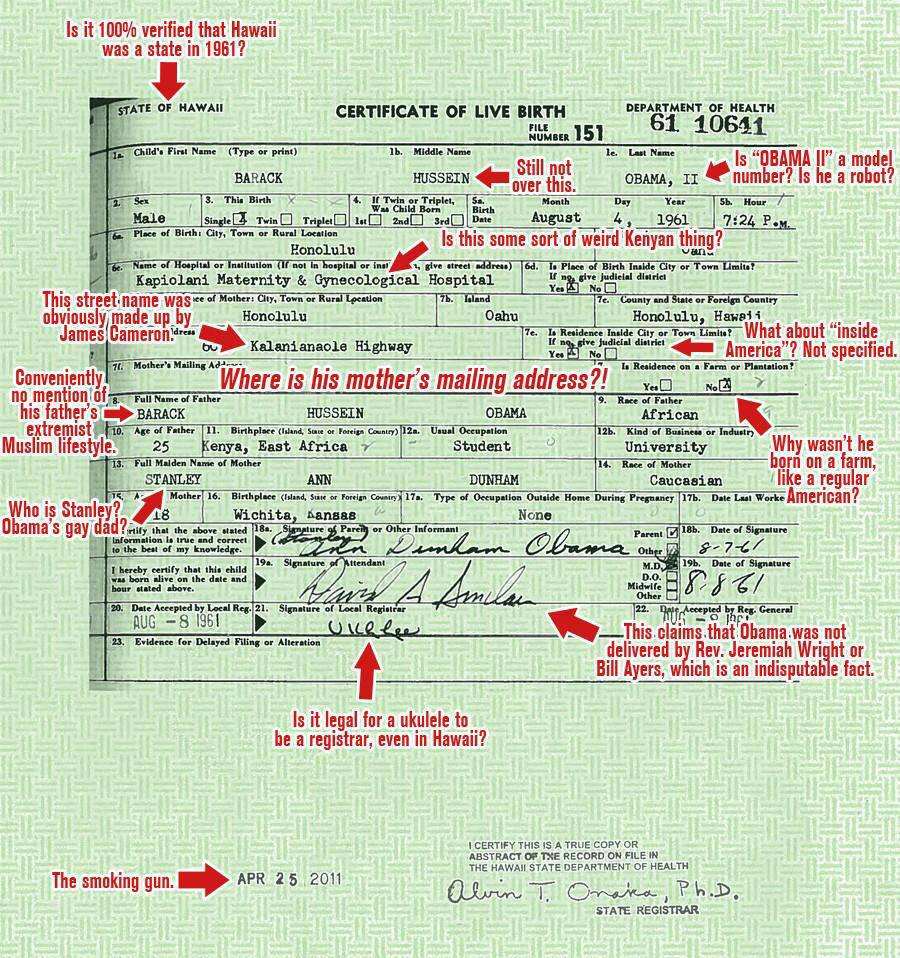 Is it 100% verified that Hawaii
was a state in 1961?
STATE OF HAWAII
CERTIFICATE OF LIVE BIRTH
DEPARTMENT OF HEALTH
FILE
NUMBER 151
61 10641
1a. Child's First Name (Type or print)
1b. Middle Name
1c. Last Name
BARACK
HUSSEIN
OBAMA, II
Still not
over this.
Is "OBAMA II" a model
number? Is he a robot?
2. Sex
Male
3. This Birth
Single X Twin Triplet
4. If Twin or Triplet,
Was Child Born
1st 2nd 3rd
5a.
Birth
Date
Month
Day
Year
August
4,
1961
5b. Hour
7:24 P.M.
6a. Place of Birth: City, Town or Rural Location
Honolulu
Oahu
Is this some sort of weird Kenyan thing?
6c. Name of Hospital or Institution (If not in hospital or give street address)
Kapiolani Maternity & Gynecological Hospital
6d. Is Place of Birth Inside City or Town Limits?
If no, give judicial district
Yes X No
of Mother: City, Town or Rural Location
Honolulu
7b. Island
Oahu
7c. County and State or Foreign Country
Honolulu, Hawaii
This street name was
obviously made up by
James Cameron.
Kalanianaole Highway
7e. Is Residence Inside City or Town Limits?
If no, give judicial district
Yes X No
What about "inside
America"? Not specified.
7f. Mother's Mailing Address
Where is his mother's mailing address?!
Is Residence on a Farm or Plantation?
Yes No X
Conveniently
no mention of
his father's
extremist
Muslim lifestyle.
8. Full Name of Father
BARACK
HUSSEIN
OBAMA
9. Race of Father
African
10. Age of Father
25
11. Birthplace (Island, State or Foreign Country)
Kenya, East Africa
12a. Usual Occupation
Student
12b. Kind of Business or Industry
University
Why wasn't he
born on a farm,
like a regular
American?
13. Full Maiden Name of Mother
STANLEY
ANN
DUNHAM
14. Race of Mother
Caucasian
Who is Stanley?
Obama's gay dad?
15. Mother
18
16. Birthplace (Island, State or Foreign Country)
Wichita, Kansas
17a. Type of Occupation Outside Home During Pregnancy
None
17b. Date Last Worked
certify that the above stated
information is true and correct
to the best of my knowledge.
18a. Signature of Parent or Other Informant
(Stanley) Ann Dunham Obama
Parent
Other
18b. Date of Signature
8-7-61
I hereby certify that this child
was born alive on the date and
hour stated above.
19a. Signature of Attendant
David A Sinclair
M.D.
D.O.
Midwife
Other
19b. Date of Signature
8-8-61
20. Date Accepted by Local Reg.
AUG -8 1961
21. Signature of Local Registrar
UKLlee
22. Date Accepted by Reg. General
AUG -8 1961
This claims that Obama was not
delivered by Rev. Jeremiah Wright or
Bill Ayers, which is an indisputable fact.
23. Evidence for Delayed Filing or Alteration
Is it legal for a ukulele to
be a registrar, even in Hawaii?
The smoking gun.
APR 25 2011
I CERTIFY THIS IS A TRUE COPY OR
ABSTRACT OF THE RECORD ON FILE IN
THE HAWAII STATE DEPARTMENT OF HEALTH
Alvin T. Onaka, Ph.D.
STATE REGISTRAR